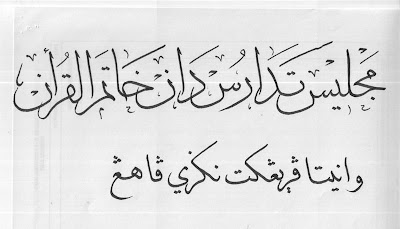 مجليس تدارس دان خاتم القرأن
وانيتا ڤريڠكت نݢري ڤاهڠ